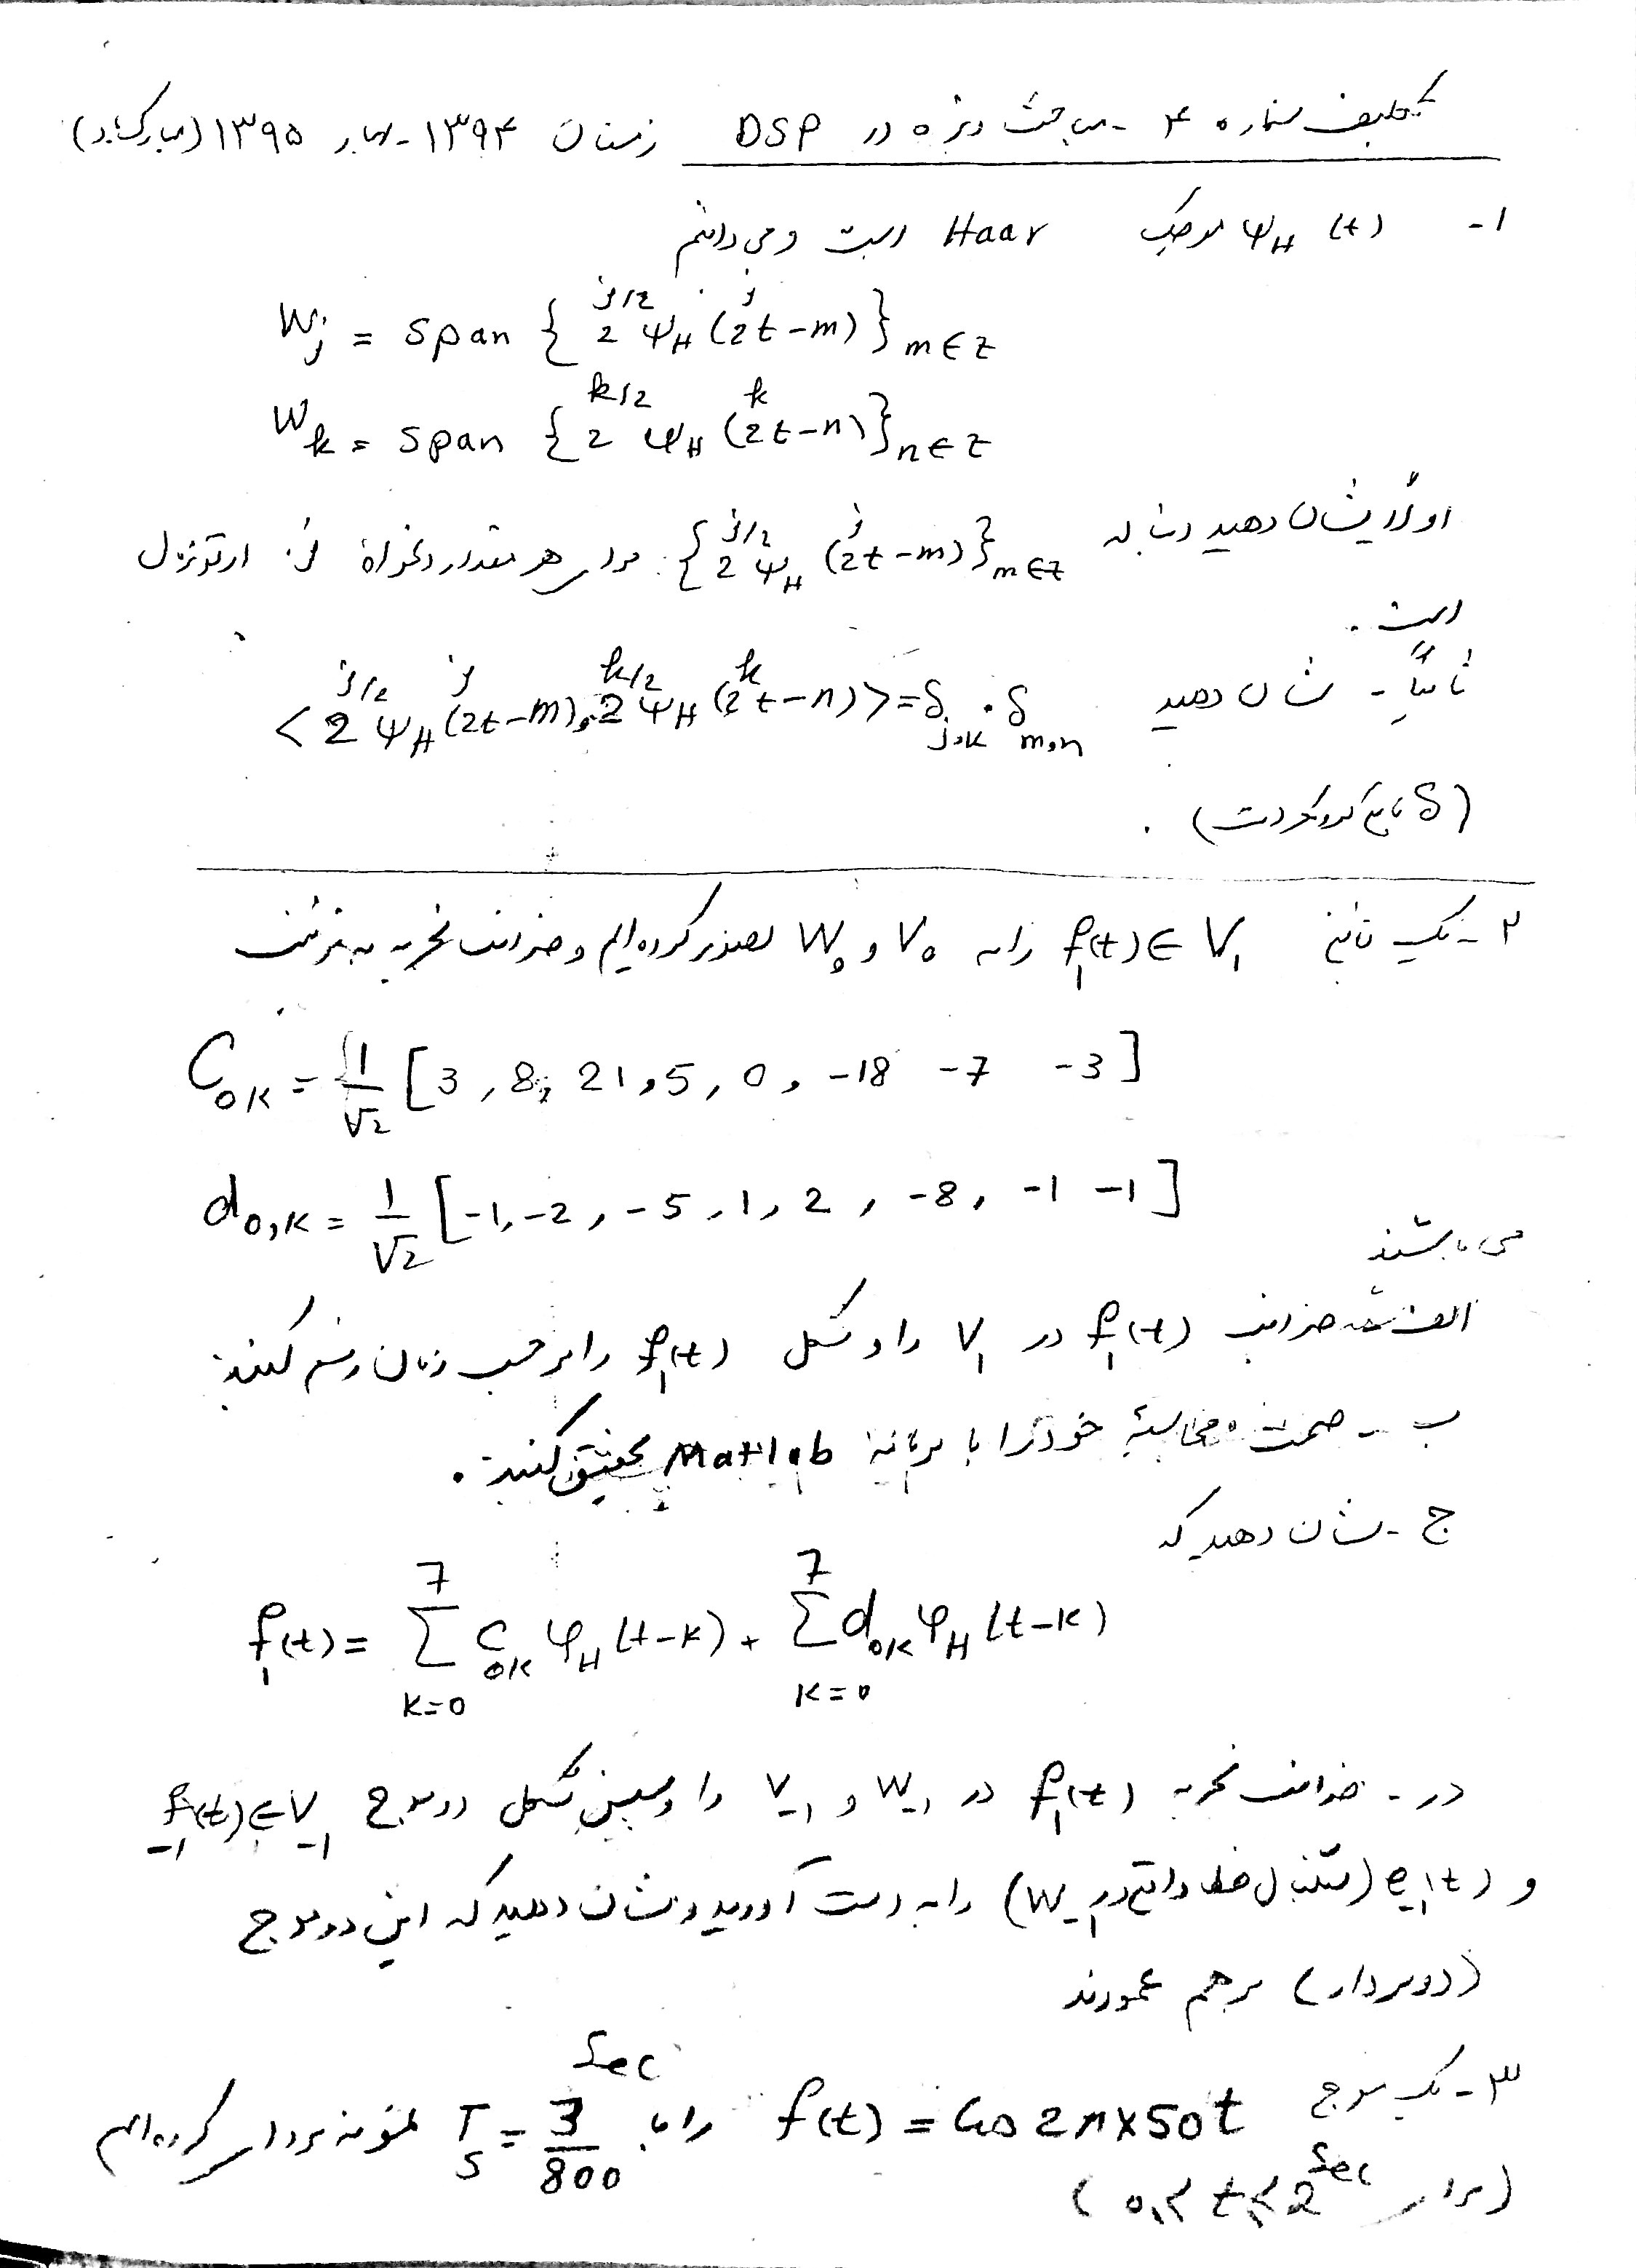 تکلیف شماره ۴ - مباحث ویژه در DSP زمستان ۱۳۹۴ - بهار ۱۳۹۵ (مبارک‌آباد)
۱- ψ_H (t) موجک Haar است و می دانیم
W_j = span { 2^{j/2} ψ_H (2^j t - m) }_{m∈Z}
W_k = span { 2^{k/2} ψ_H (2^k t - n) }_{n∈Z}
اولاً نشان دهید دنباله { 2^{j/2} ψ_H (2^j t - m) }_{m∈Z} برای هر مقدار دلخواه j ارتونرمال
است .
ثانیاً - نشان دهید < 2^{j/2} ψ_H (2^j t - m), 2^{k/2} ψ_H (2^k t - n) > = δ_{j,k} . δ_{m,n}
(δ تابع کرونکر است) .
۲- یک تابع f_1(t) ∈ V_1 را به V_0 و W_0 تصویر کرده‌ایم و ضرایب تجزیه به ترتیب
C_{0K} = 1/√2 [3, 8, 21, 5, 0, -18 -7 -3]
d_{0,K} = 1/√2 [-1, -2, -5, 1, 2, -8, -1 -1]
می باشند
الف ضرایب f_1(t) در V_1 را و شکل f_1(t) را بر حسب زمان رسم کنید.
ب - صحت محاسبه خود را با برنامه Matlab تحقیق کنید .
ج - نشان دهید که
f_1(t) = Σ_{K=0}^{7} C_{0K} φ_H (t-K) + Σ_{K=0}^{7} d_{0K} ψ_H (t-K)
د - ضرایب تجزیه f_1(t) در W_{-1} و V_{-1} را و همچنین شکل دو موج f_{-1}(t) ∈ V_{-1}
و e_{-1}(t) (سیگنال خطا واقع در W_{-1}) را به دست آورید و نشان دهید که این دو موج
(دو بردار) بر هم عمودند
۳- یک موج f(t) = Cos 2π×50t را با T_s = 3/800 Sec نمونه برداری کرده‌ایم
(برای 0 ≤ t ≤ 2 Sec)